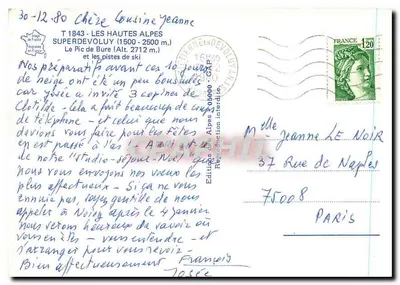 30-12.80 Chère Cousine Jeanne
T 1843 - LES HAUTES ALPES
SUPERDEVOLUY (1500 - 2500 m.)
Le Pic de Bure (Alt. 2712 m.)
et les pistes de ski
Nos préparatifs avant ces 10 jours
de neige ont été un peu bousculés
car Josée a invité 3 copines de
Clotilde - Cela a fait beaucoup de coups
de téléphone - et celui que nous
devions vous faire pour les fêtes
en est passé à l'as
de notre "studio-séjour-Noël" que
nous vous envoyons nos voeux les
plus affectueux - Si ça ne vous
ennuie pas, soyez gentille de nous
appeler à Noisy après le 4 janvier
nous serons heureux de savoir où
vous en êtes - vous entendre - et
s'arranger pour vous revoir -
Bien affectueusement François
Josée
Alpes - 05000 - GAP
Reproduction interdite
FRANCE
1,20
Mlle Jeanne LE NOIR
37 Rue de Naples
75008
PARIS